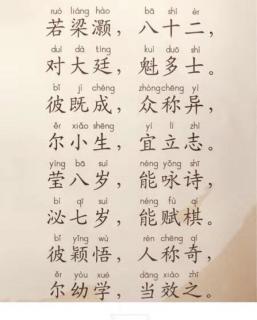 ruò liáng hào bā shí èr
若梁灏，八十二，
duì dà tíng kuí duō shì
对大廷，魁多士。
bǐ jì chéng zhòng chēng yì
彼既成，众称异，
ěr xiǎo shēng yí lì zhì
尔小生，宜立志。
yíng bā suì néng yǒng shī
莹八岁，能咏诗，
bì qī suì néng fù qí
泌七岁，能赋棋。
bǐ yǐng wù rén chēng qí
彼颖悟，人称奇，
ěr yòu xué dāng xiào zhī
尔幼学，当效之。